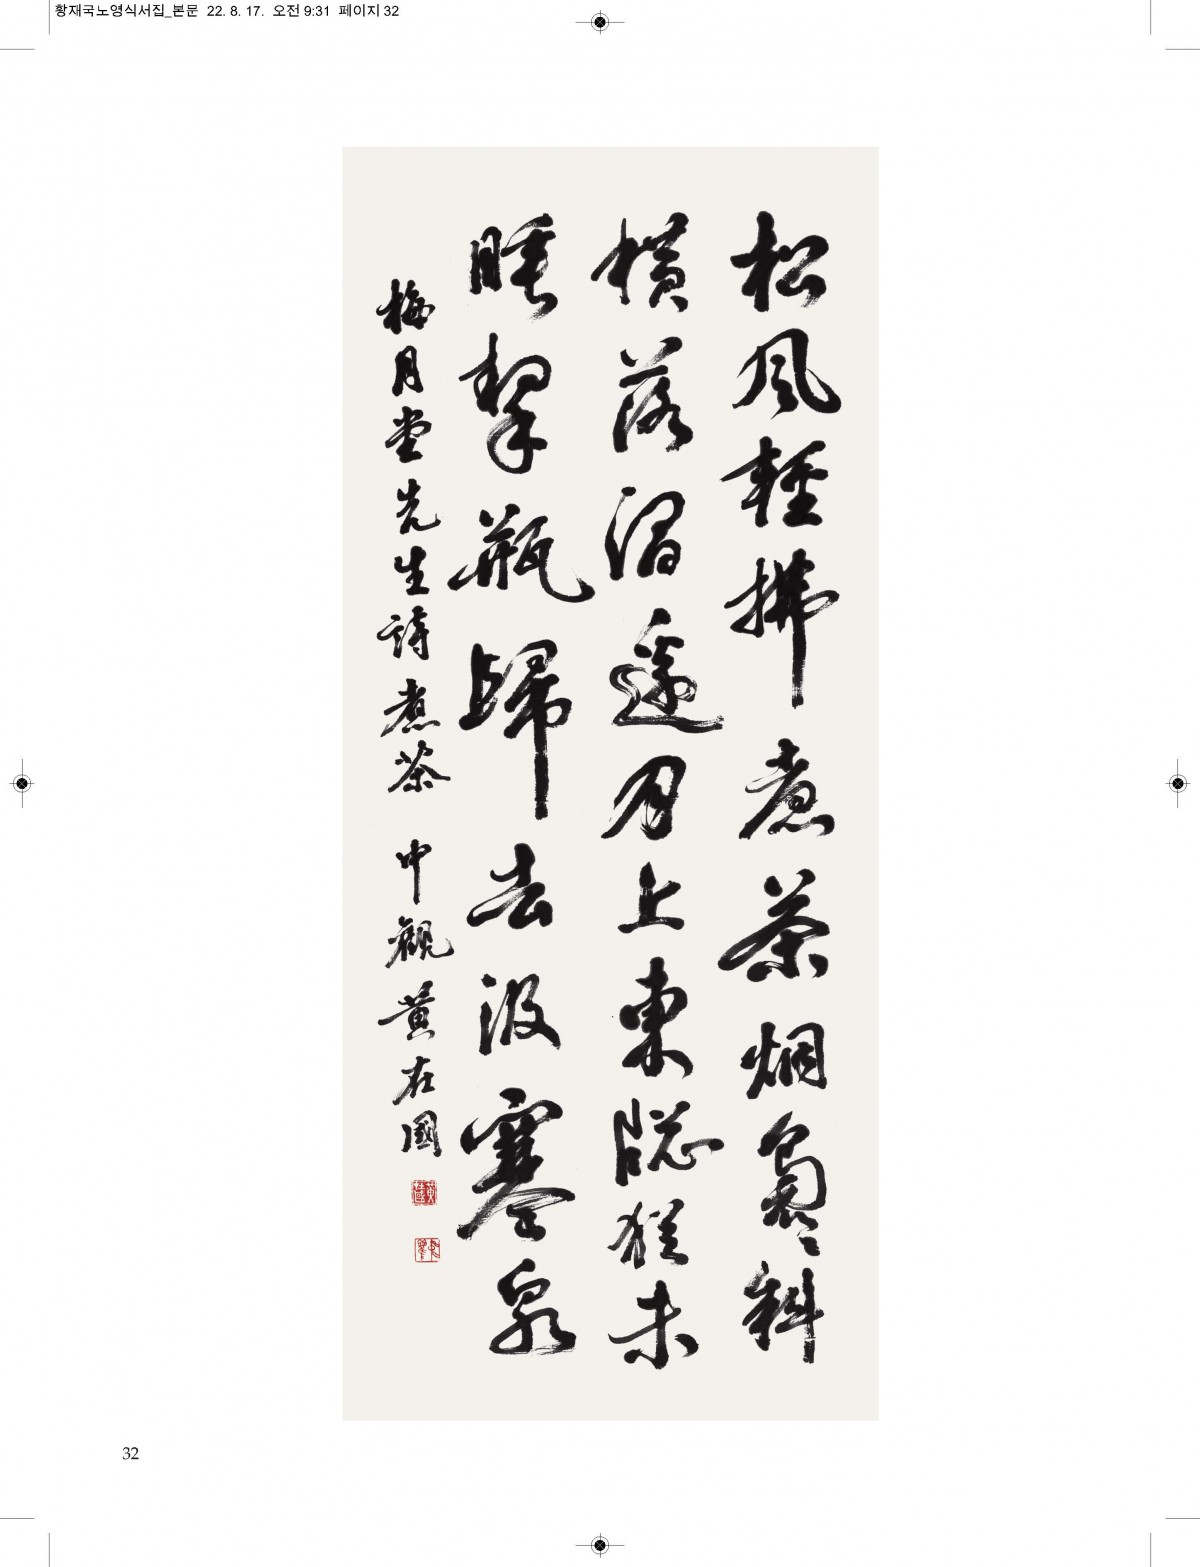 黄재국노영식서집_본문 22. 8. 17. 오전 9:31 페이지 32
松風輕拂煮茶烟裊裊斜
橫落澗邊月上東窓猶未
睡挈瓶歸去汲寒泉
梅月堂先生詩煮茶 中觀 黃在國
32